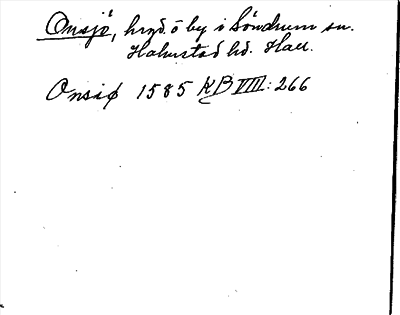 Onsjö, hmd. o by i Söndrum sn.
Halmstad hd. Hall.
Onsiø 1585 KB VIII: 266